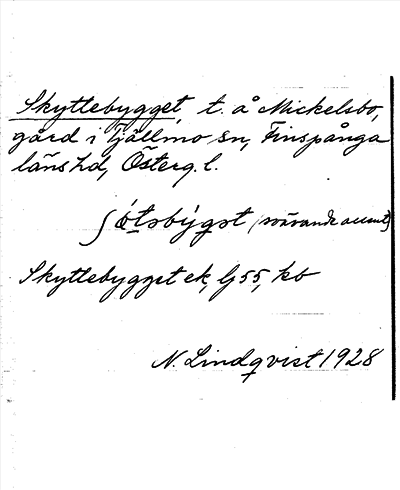 Skyttebygget, t. å Mickelsbo,
gård i Tjällmo sn, Finspånga
läns hd, Österg. l.
ʃø̀tsbýgət (svävande accent)
Skyttebygget ek, Ij 55, kb
N. Lindqvist 1928